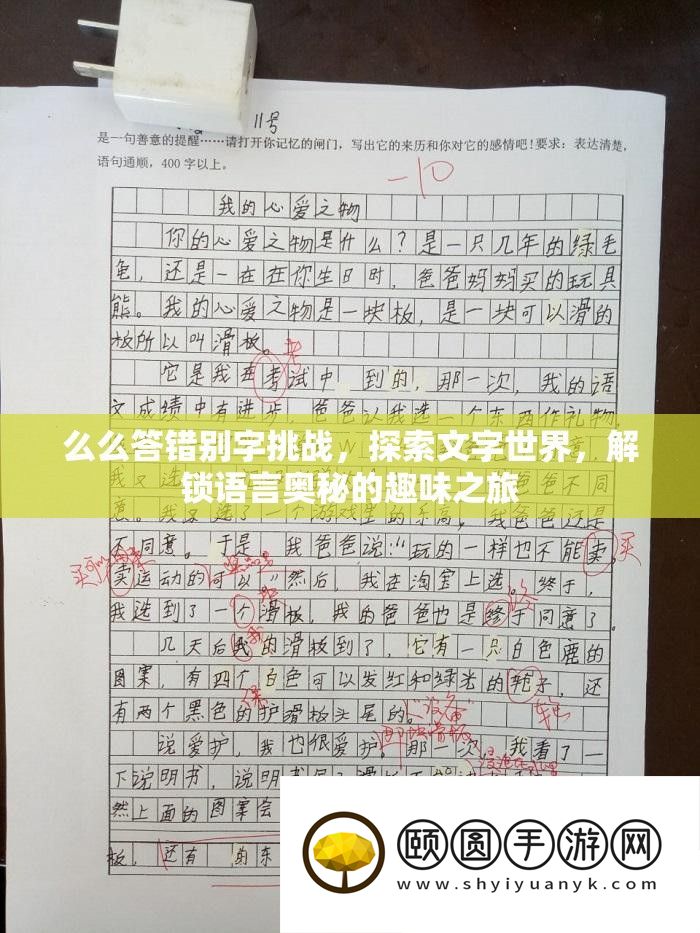 11号
是一句善意的提醒……请打开你记忆的闸门，写出它的来历和你对它的感情吧！要求：表达清楚，
语句通顺，400字以上。
-10
我的心爱之物
你的心爱之物是什么？是一只几年的绿毛
龟，还是一在在你生日时，爸爸妈妈买的玩具
熊。我的心爱之物是一块板，是一块可以滑的
板所以叫滑板。
它是我再考试中，到的，那一次，我的语
文成绩中有进步，爸爸认我选一个东西作礼物，
么么答错别字挑战，探索文字世界，解
锁语言奥秘的趣味之旅
爸爸不同
意。我又选了一个游戏里的乐高，我爸爸还是
不同意。于是，我爸爸说：“玩的一样也不能卖，
买
卖运动的可以”然后，我在淘宝上选。终于，
我选到了一个滑板，我的爸爸也是终于同意了。
几天后我的滑板到了，它有一只白色鹿的
图案，有四个白色可以发红和绿光的轮子，还
有两个黑色的护滑板头尾的。
“设备”
说爱护，我也很爱护。那一次，我看了一
下说明书，说明书
然上面的图案会
板，还有
颐圆手游网
www.shyiyuanyk.com